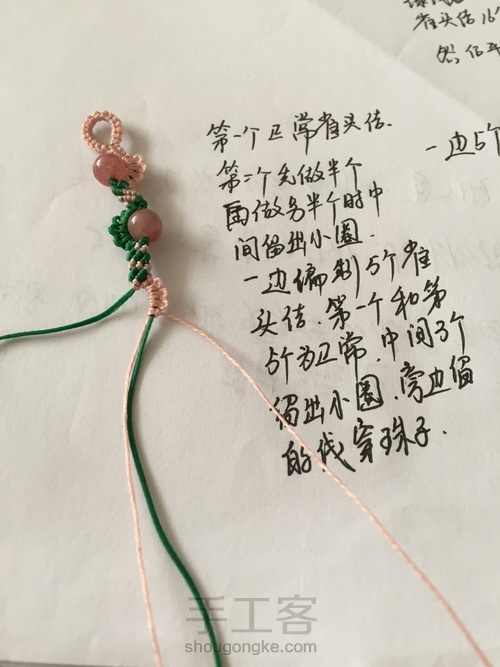 雀头结16个
第一个正常雀头结.
一边5个
第二个先做半个
再做另半个时中
间留出小圈.
一边编制5个雀
头结.第一个和第
5个为正常.中间3个
留出小圈.旁边留
的线穿珠子.
手工客
shougongke.com